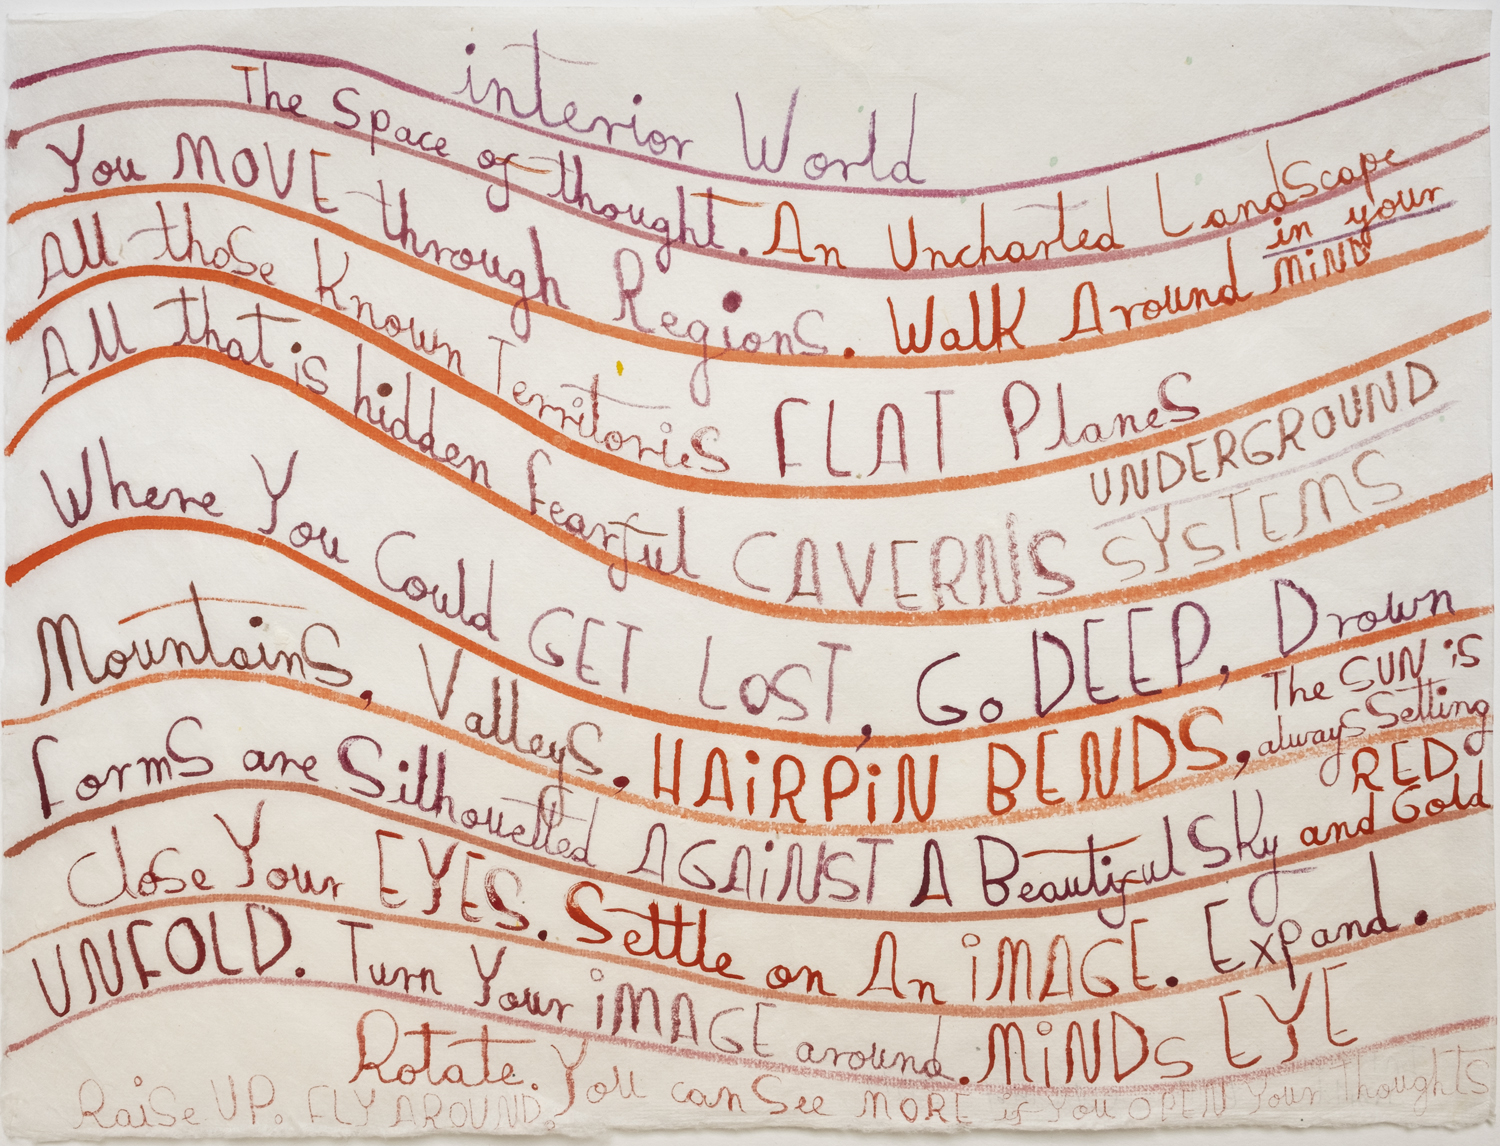 interior World
The Space of thought. An Uncharted LandScape
You MOVE through RegionS. Walk Around in your MiND
All thoSe Known TerritorieS FLAT PlaneS
All that is hidden fearful CAVERNS UNDERGROUND SYSTEMS
Where You Could GET LOST, Go DEEP, Drown
MountainS, ValleyS, HAiRPiN BENDS, The SUN iS always Setting
formS are Silhouetted AGAiNST A Beautiful SKy and RED Gold
Close Your EYES. Settle on An iMAGE. Expand.
UNFOLD. Turn Your iMAGE around. MiNDs EYE
Rotate. You can See MORE if You OPEN Your thoughtS
RaiSe UP. FLY AROUND.